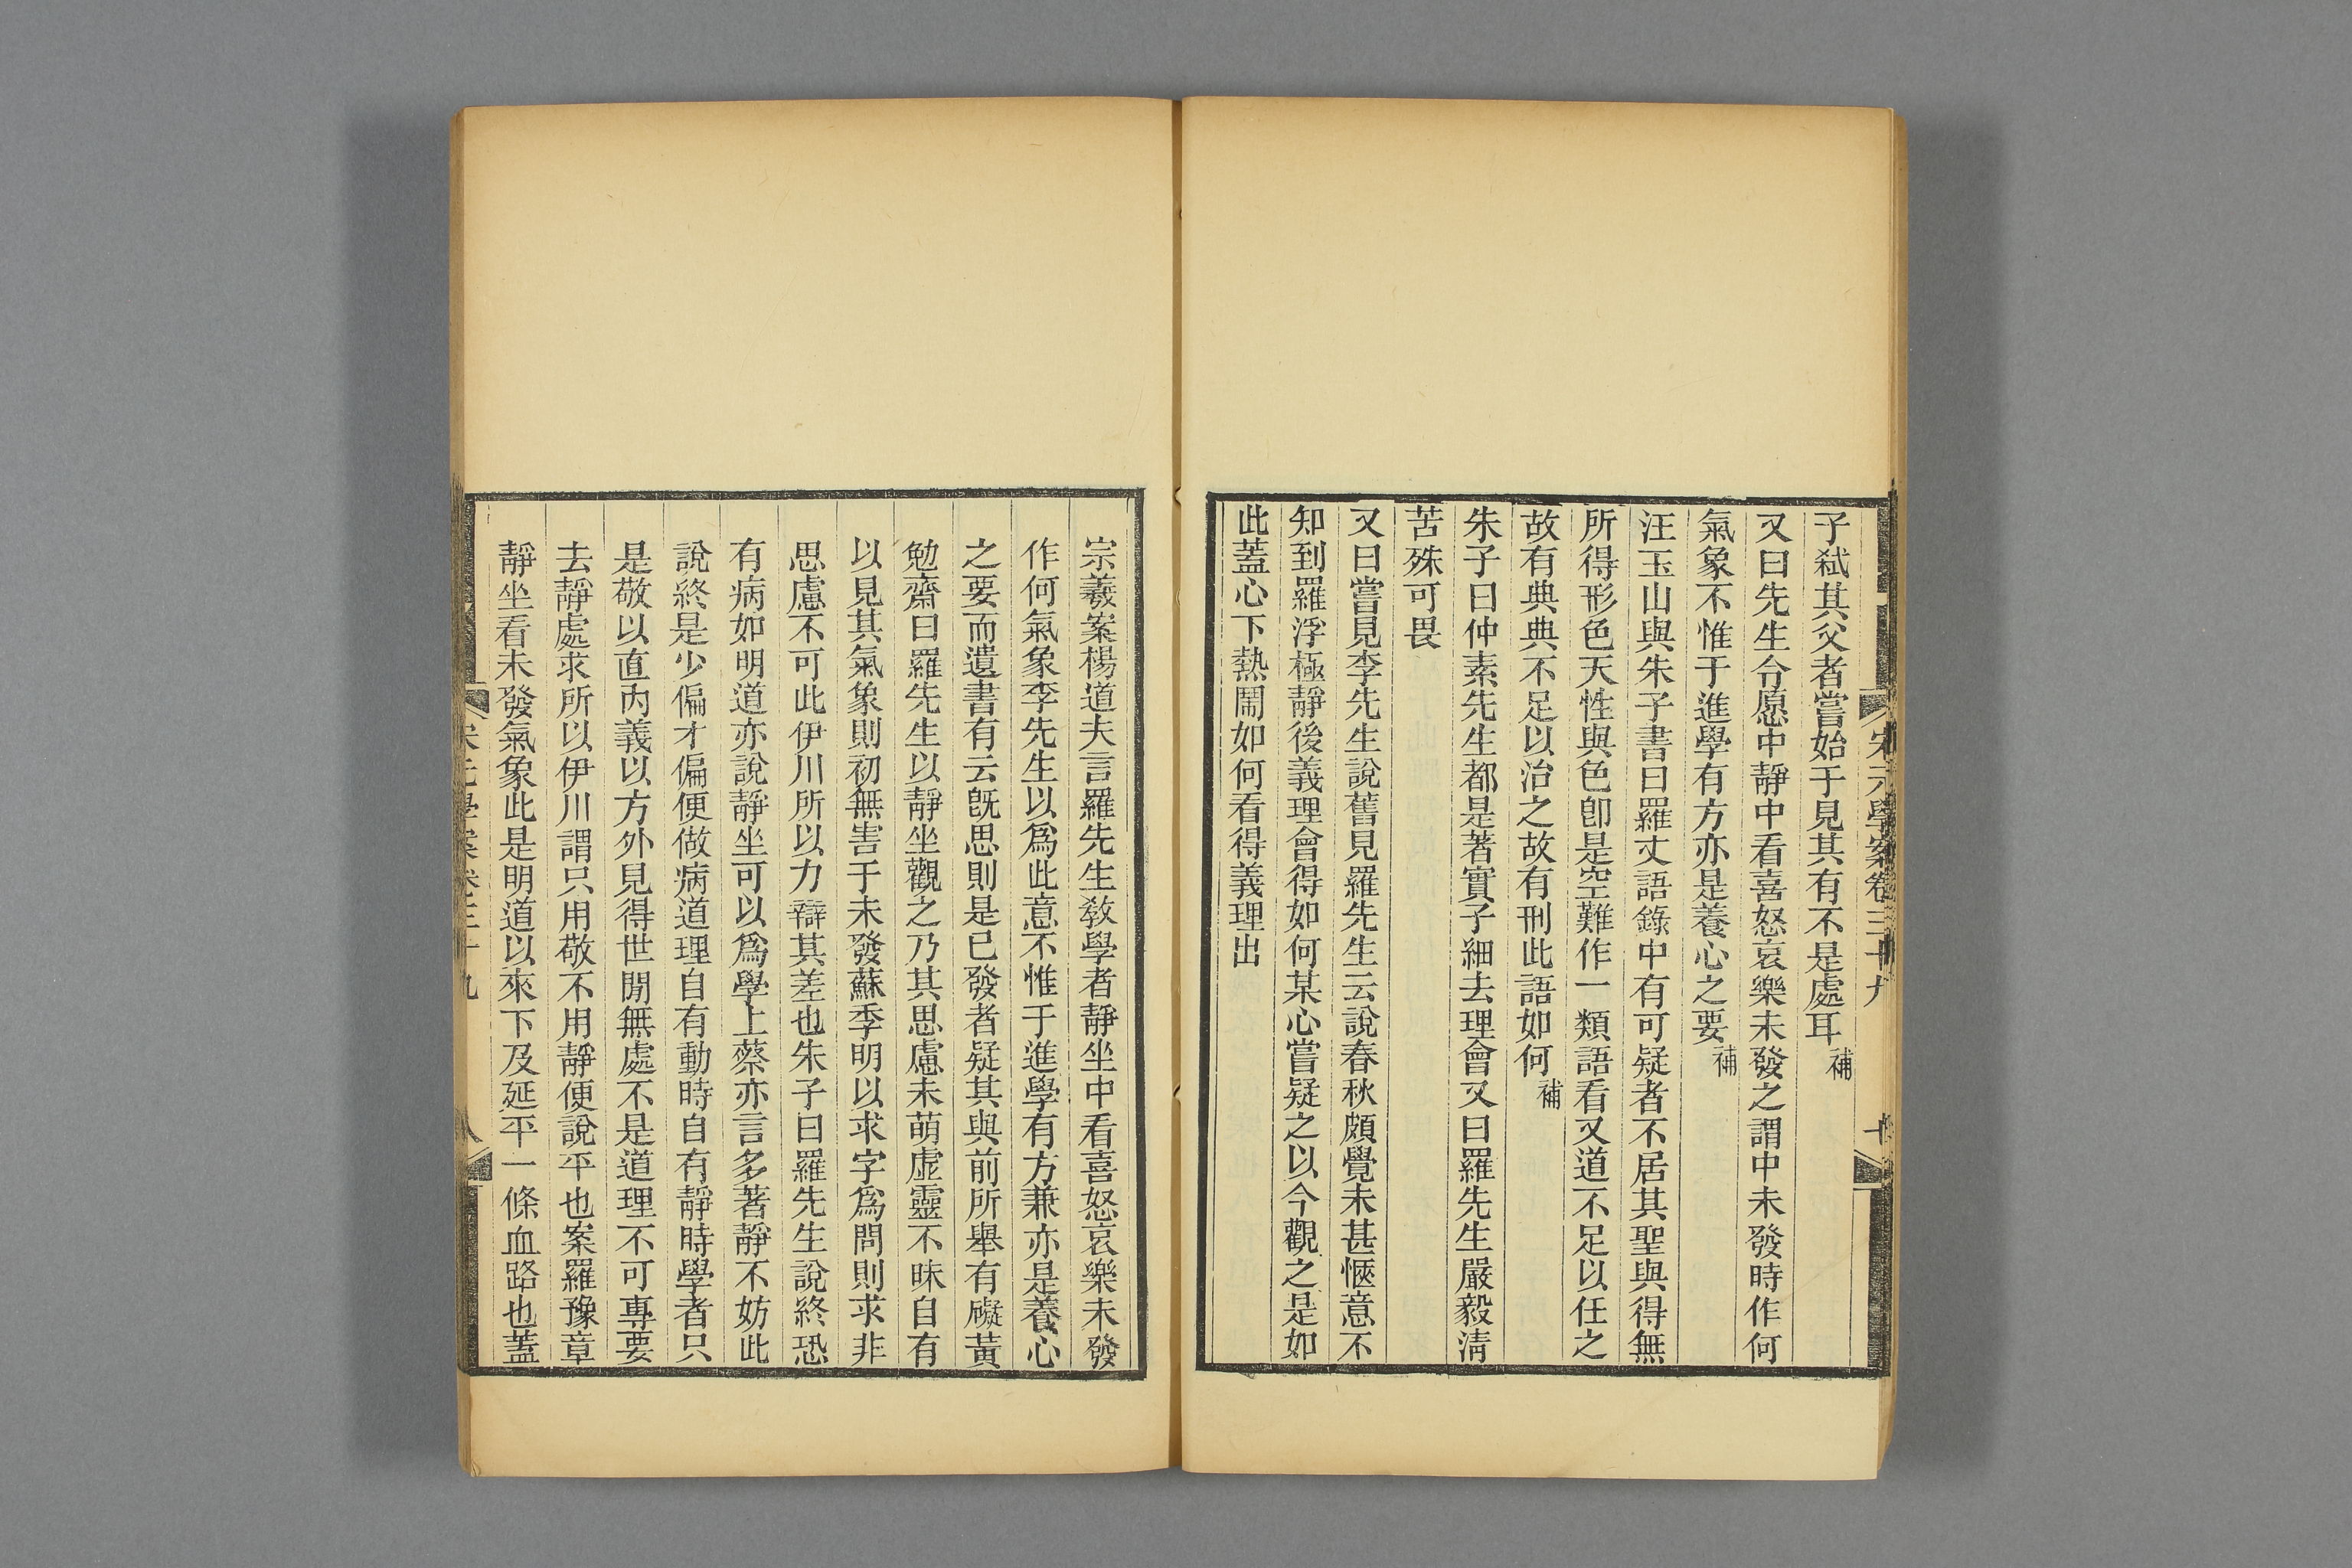 宋元學案卷三十九
子弒其父者嘗始于見其有不是處耳補
又曰先生令愿中靜中看喜怒哀樂未發之謂中未發時作何
氣象不惟于進學有方亦是養心之要補
汪玉山與朱子書曰羅丈語錄中有可疑者不居其聖與得無
所得形色天性與色卽是空難作一類語看又道不足以任之
故有典典不足以治之故有刑此語如何補
朱子曰仲素先生都是著實子細去理會又曰羅先生嚴毅淸
苦殊可畏
又曰嘗見李先生說舊見羅先生云說春秋頗覺未甚愜意不
知到羅浮極靜後義理會得如何某心嘗疑之以今觀之是如
此蓋心下熱鬧如何看得義理出
宗羲案楊道夫言羅先生敎學者靜坐中看喜怒哀樂未發
作何氣象李先生以爲此意不惟于進學有方兼亦是養心
之要而遺書有云旣思則是已發者疑其與前所舉有礙黃
勉齋曰羅先生以靜坐觀之乃其思慮未萌虛靈不昧自有
以見其氣象則初無害于未發蘇季明以求字爲問則求非
思慮不可此伊川所以力辯其差也朱子曰羅先生說終恐
有病如明道亦說靜坐可以爲學上蔡亦言多著靜不妨此
說終是少偏才偏便做病道理自有動時自有靜時學者只
是敬以直內義以方外見得世閒無處不是道理不可專要
去靜處求所以伊川謂只用敬不用靜便說平也案羅豫章
靜坐看未發氣象此是明道以來下及延平一條血路也蓋
宋元學案卷三十九